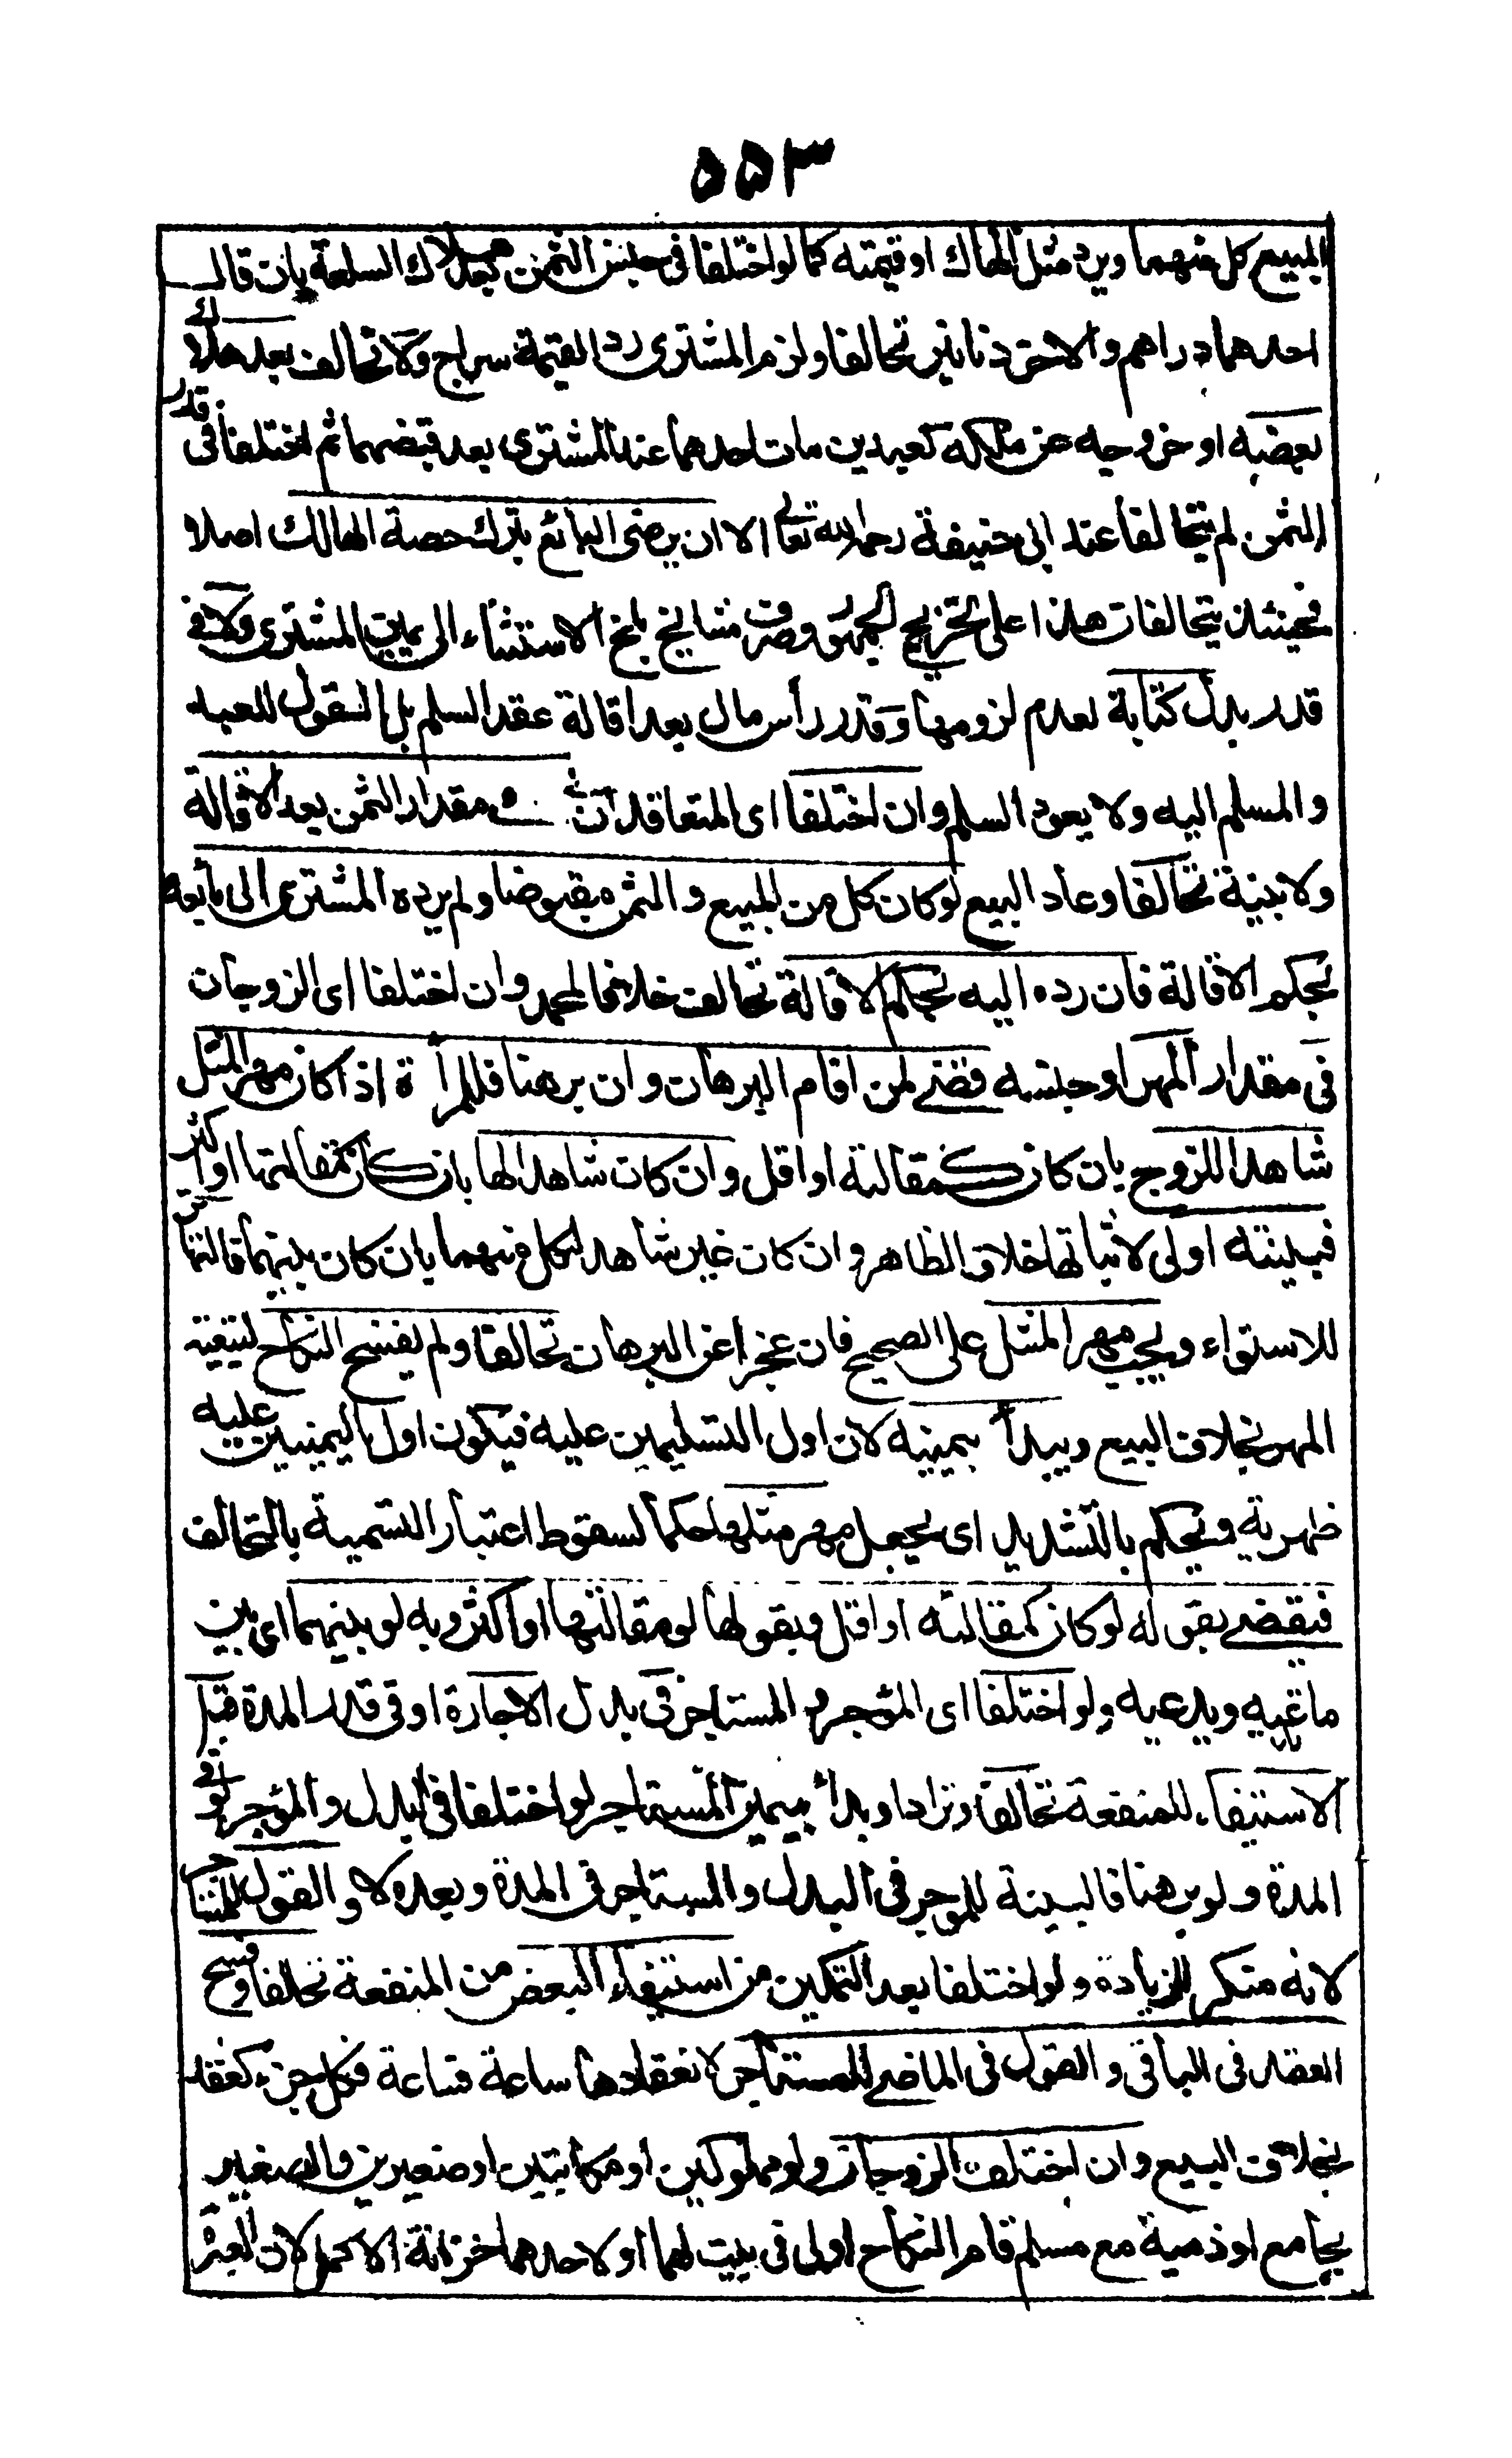 ٥٥٣
المبيع كل منهما ويرد مثل الهالك او قيمته كما لو اختلفا فى جنس الثمن بعد هلاك السلعة بان قال
احدهما دراهم والاخر دنانير تحالفا ولزم المشترى رد القيمة سراج ولا تحالف بعد هلاك
بعضه او خروجه عن ملكه كعبدين مات احدهما عند المشترى بعد قبضهما ثم اختلفا فى قدر
الثمن لم يتحالفا عند ابى حنيفة رحمه الله تعالى الا ان يرضى البائع بترك حصة الهالك اصلا
فحينئذ يتحالفان هذا على تخريج الجمهور وصرف مشايخ بلخ الاستثناء الى يمين المشترى ولا فى
قدر بدل كتابة لعدم لزومها وقدر رأس مال بعد اقالة عقد السلم بل القول للعبد
والمسلم اليه ولا يعود السلم وان اختلفا اى المتعاقدان فى مقدار الثمن بعد الاقالة
ولا بينة تحالفا وعاد البيع لو كان كل من المبيع والثمن مقبوضا ولم يرده المشترى الى بائعه
بحكم الاقالة فان رده اليه بحكم الاقالة لا تحالف خلافا لمحمد وان اختلفا اى الزوجان
فى مقدار المهر او جنسه قضى لمن اقام البرهان وان برهنا فللمرأة اذا كان مهر المثل
شاهدا للزوج بان كان كمقالته او اقل وان كان شاهدا لها بان كان كمقالتها او اكثر
فبينته اولى لاثباتها خلاف الظاهر وان كان غير شاهد لكل منهما بان كان بينهما تهاترتا
للاستواء ويجب مهر المثل على الصحيح فان عجزا عن البرهان تحالفا ولم يفسخ النكاح لتبعية
المهر بخلاف البيع ويبدأ بيمينه لان اول التسليمين عليه فيكون اول اليمينين عليه
ظهرية ويحكم بالتشديد اى يجعل مهر مثلها حكما لسقوط اعتبار التسمية بالتحالف
فيقضى بقوله لو كان كمقالته او اقل وبقولها لو كمقالتها او اكثر وبه لو بينهما اى بين
ما تدعيه ويدعيه ولو اختلفا اى المؤجر والمستاجر فى بدل الاجارة او فى قدر المدة قبل
الاستيفاء للمنفعة تحالفا وترادا وبدأ بيمين المستاجر لو اختلفا فى البدل والمؤجر لو فى
المدة ولو برهنا فالبينة للموجر فى البدل والمستاجر فى المدة وبعده لا والقول للمستاجر
لانه منكر للزيادة ولو اختلفا بعد التمكين من استيفاء البعض من المنفعة تحالفا وفسخ
العقد فى الباقى والقول فى الماضى للمستاجر لانعقادها ساعة فساعة فكل جزء كعقد
بخلاف البيع وان اختلف الزوجان ولو مملوكين او مكاتبين او صغيرين والصغير
يجامع او ذمية مع مسلم قام النكاح اولى فى بيت لهما او لاحدهما خزانة الاكمل لان العبرة